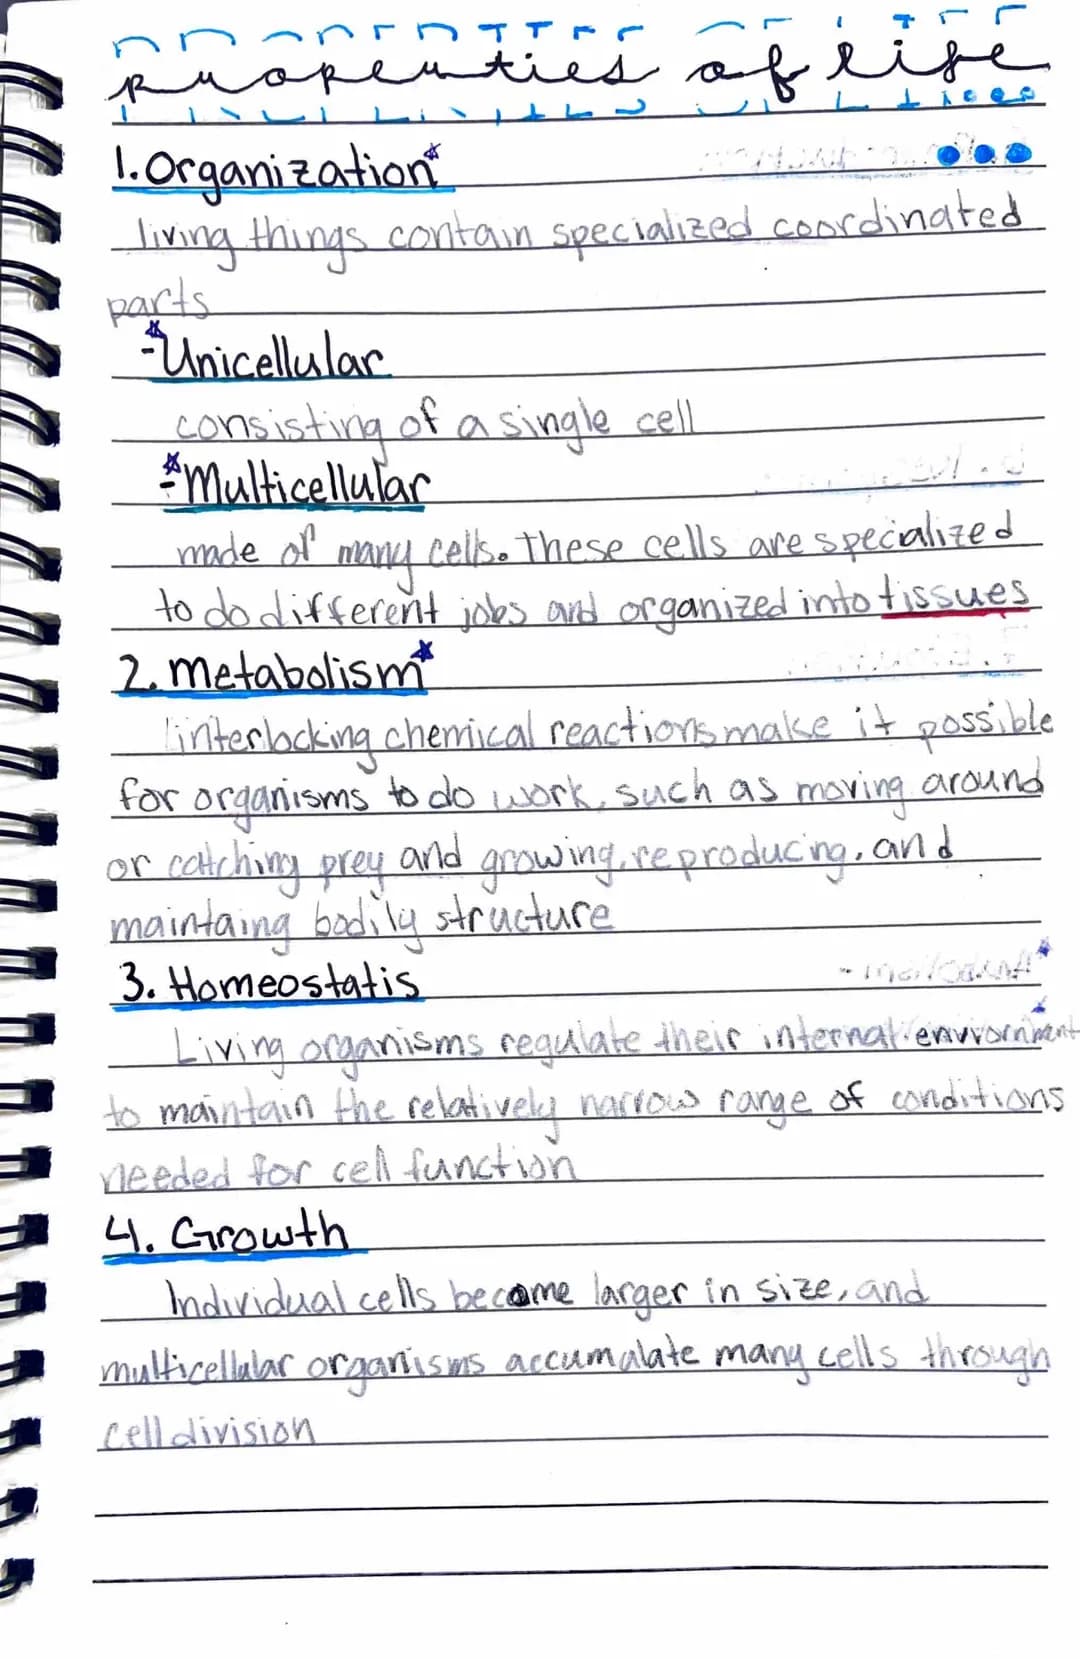 properties of life
1. Organization
living things contain specialized coordinated
parts
- Unicellular
consisting of a single cell
- Multicellular
made of many cells. These cells are specialized
to do different jobs and organized into tissues
2. Metabolism
interlocking chemical reactions make it possible
for organisms to do work, such as moving around
or catching prey and growing, reproducing, and
maintaing bodily structure
3. Homeostatis
Living organisms regulate their internal envvornment
to maintain the relatively narrow range of conditions
needed for cell function
4. Growth
Individual cells become larger in size, and
multicellular organisms accumalate many cells through
cell division